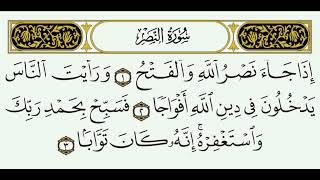 سُورَةُ النَّصْرِ
إِذَا جَآءَ نَصْرُ ٱللَّهِ وَٱلْفَتْحُ ١ وَرَأَيْتَ ٱلنَّاسَ
يَدْخُلُونَ فِى دِينِ ٱللَّهِ أَفْوَاجًا ٢ فَسَبِّحْ بِحَمْدِ رَبِّكَ
وَٱسْتَغْفِرْهُ ۚ إِنَّهُۥ كَانَ تَوَّابًۢا ٣